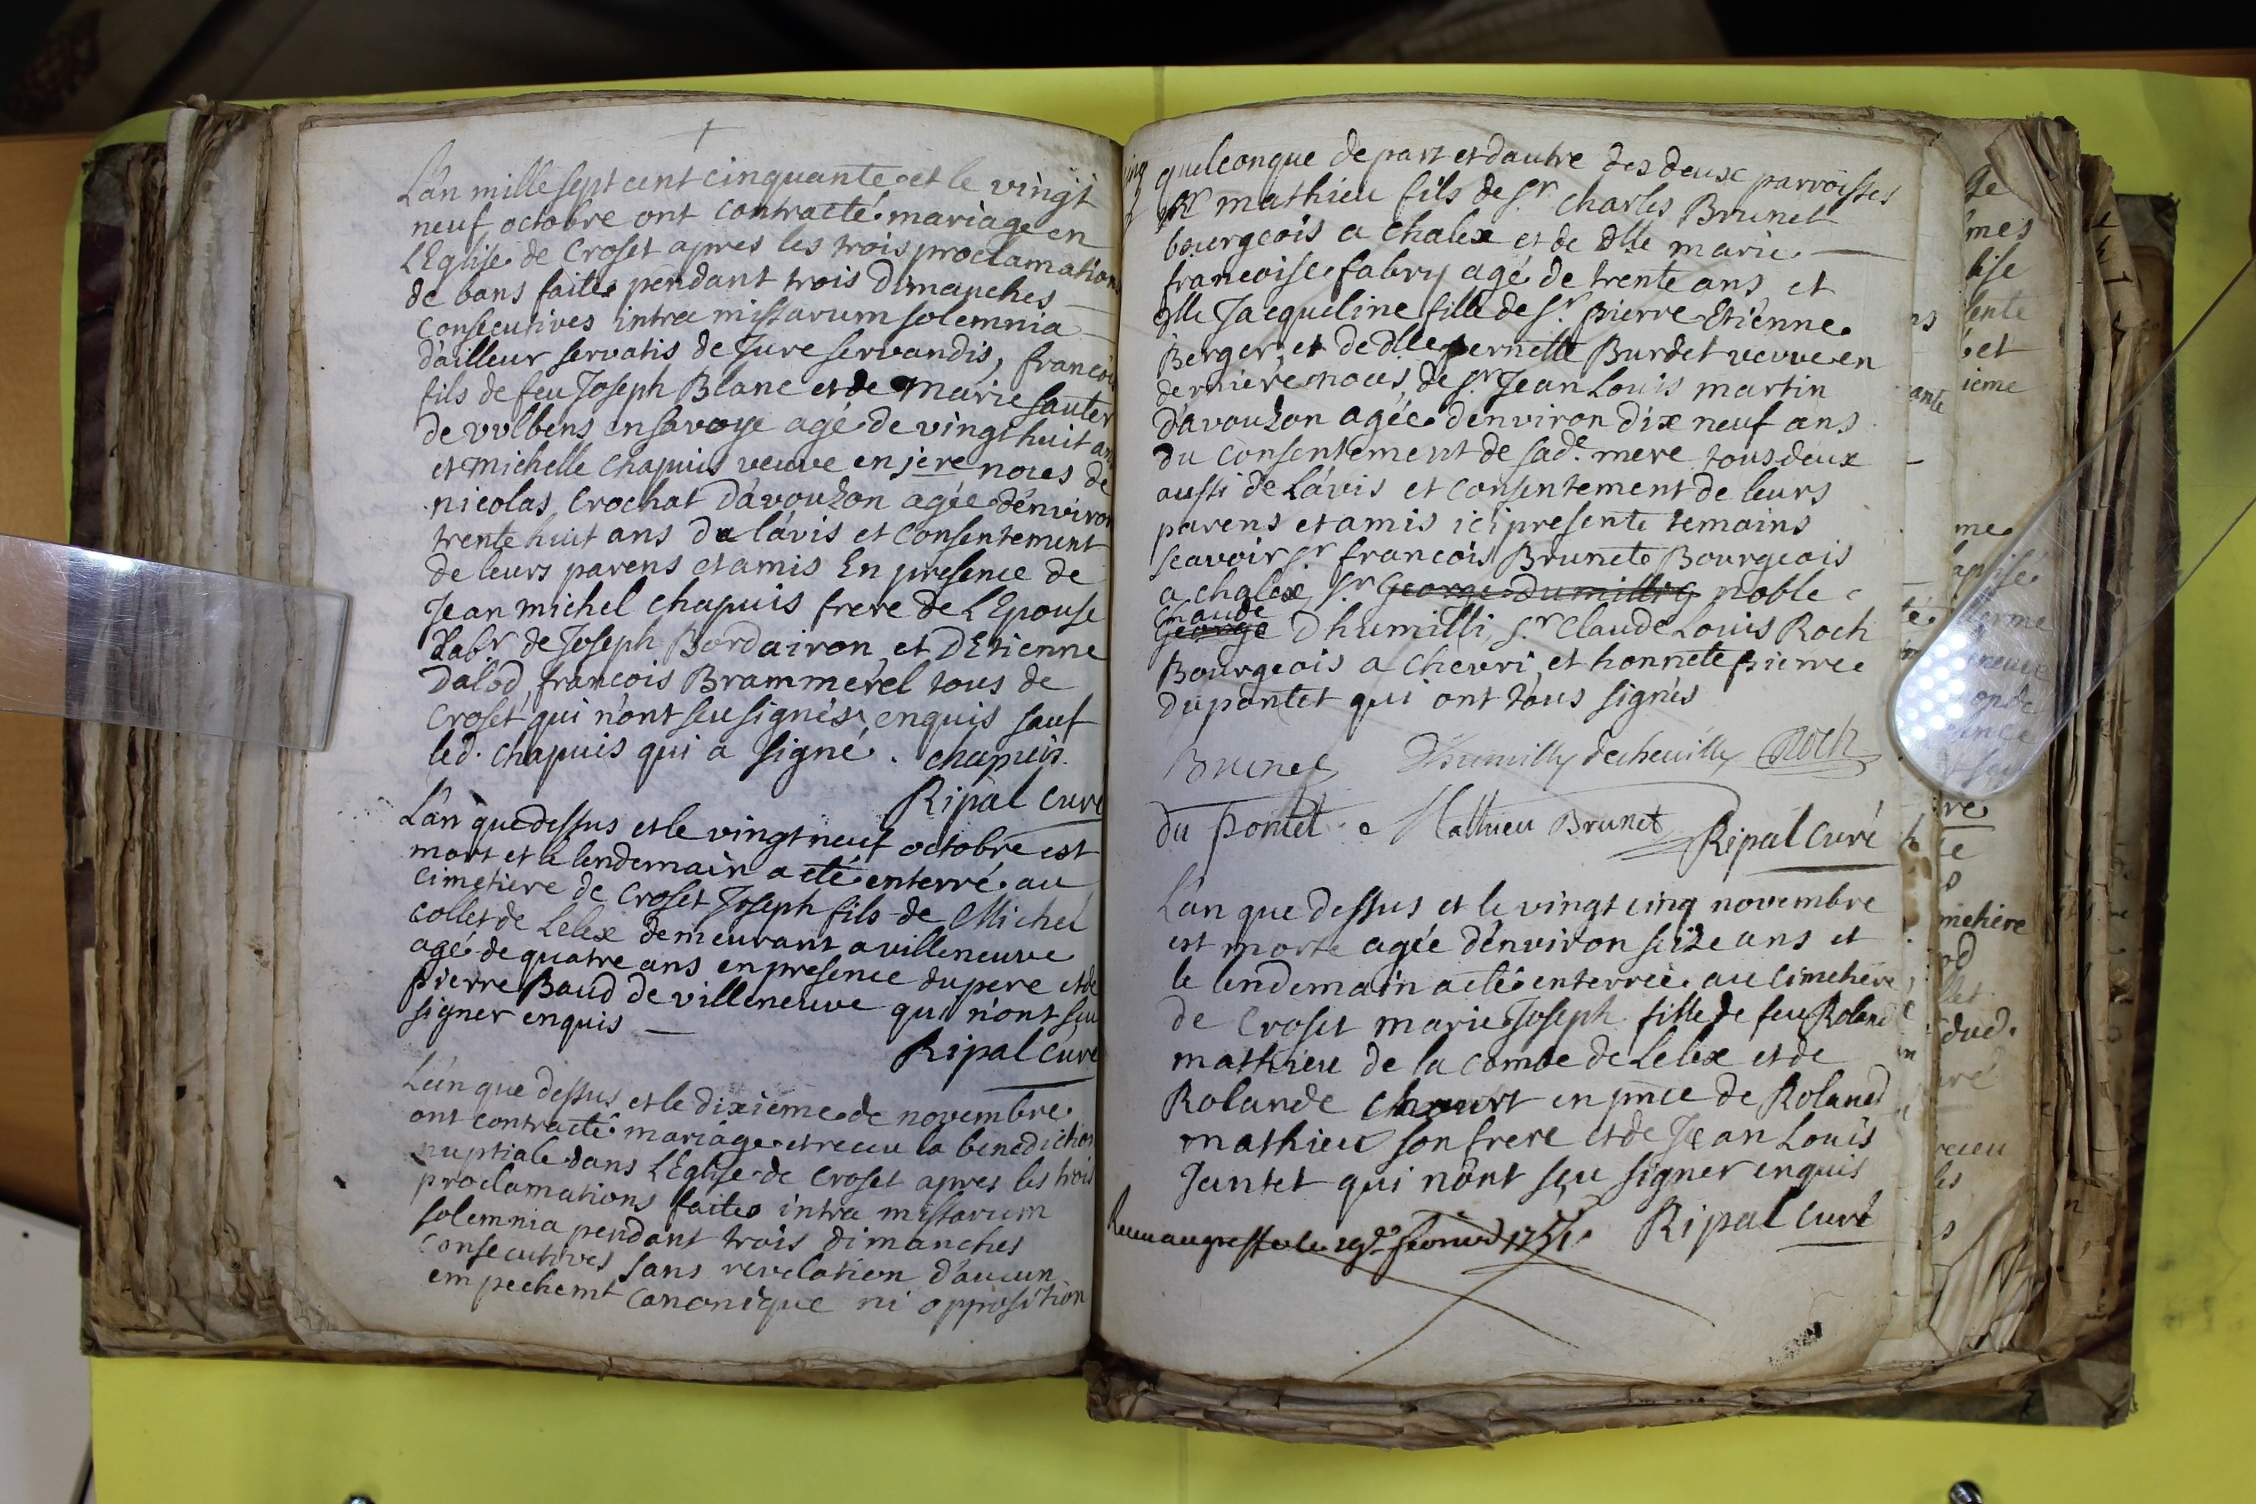 L'an mille sept cent cinquante et le vingt
neuf octobre ont contracté mariage en
L'Eglise de Croset apres les trois proclamations
de bans faites pendant trois Dimanches
consecutives intra missarum solemnia
d'ailleur servatis de Jure servandis, francois
fils de feu Joseph Blanc et de Marie Sauter
de vvlbens en Savoye agé de vingt huit ans
et Michelle Chapuis veuve en 1ere noces de
nicolas Crochat D'avouzon agée d'environ
trente huit ans de l'avis et Consentement
de leurs parens et amis En presence de
Jean michel Chapuis frere de L'Epouse
de Joseph Bordairon, et D'Etienne
Dalod, francois Brammerel tous de
Croset qui n'ont seu signés enquis sauf
led. Chapuis qui a signé. Chapuis.
Ripal Curé
L'an que dessus et le vingt neuf octobre est
mort et le lendemain a eté enterré au
Cimetiere de Croset Joseph fils de Michel
Collet de Lelex demeurant a villeneuve
agé de quatre ans en presence du pere et de
pierre Baud de villeneuve qui n'ont seu
signer enquis
Ripal Curé
L'an que dessus et le dixieme de novembre
ont contracté mariage et receu la benediction
nuptiale dans L'Eglise de Croset apres les trois
proclamations faites intra missarum
solemnia pendant trois dimanches
consecutives sans revelation d'aucun
empechemt canonique ni opposition
quelconque de part et d'autre des deux parroisses
Sr mathieu fils de Sr. Charles Brunet
bourgeois a Chalex et de Dlle marie
francoise fabry agé de trente ans et
Dlle Jacqueline fille de Sr. pierre Etienne
Berger, et de Dlle pernette Burdet veuve en
derniere noces de Sr Jean Louis martin
d'avouzon agée d'environ dix neuf ans
du consentement de sade. mere tous deux
aussi de L'avis et consentement de leurs
parens et amis ici presents temains
scavoir Sr francois Brunet Bourgeois
a chalex, Sr George Dumilly noble
Claude
George Dhumilli, Sr Claude Louis Roch
Bourgeois a Chevri, et honnete pierre
dupontet qui ont tous signés
Brunet Dhumilly de chevilly Roch
du pontet Mathieu Brunet Ripal Curé
L'an que dessus et le vingt cinq novembre
est morte agée d'environ seize ans et
le lendemain a eté enterrée au cimetiere
de Croset marie Joseph fille de feu Roland
mathieu de la combe de Lelex et de
Rolande en pnce de Roland
mathieu son frere et de Jean Louis
Jantet qui n'ont seu signer enquis
Ripal Curé
Receu au greffe le 19e fevrier 1751.